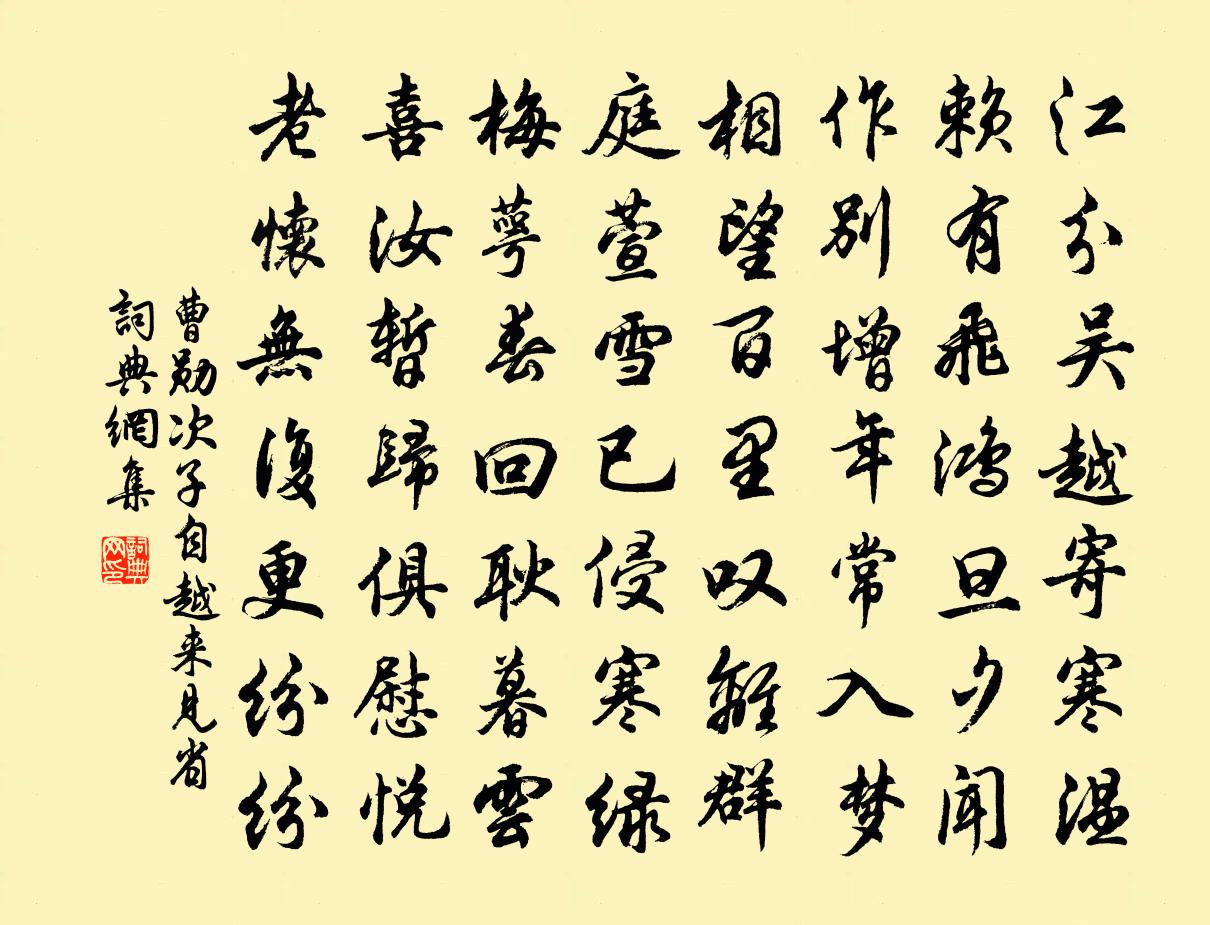 江分吴越寄寒温
赖有飛鸿旦夕闻
作别增年常入梦
相望百里叹離群
庭萱雪已侵寒绿
梅萼春回耿暮雲
喜汝暫歸俱慰悦
老懷無復更纷纷
曹勛次子自越来見省
詞典網集
詞典网印